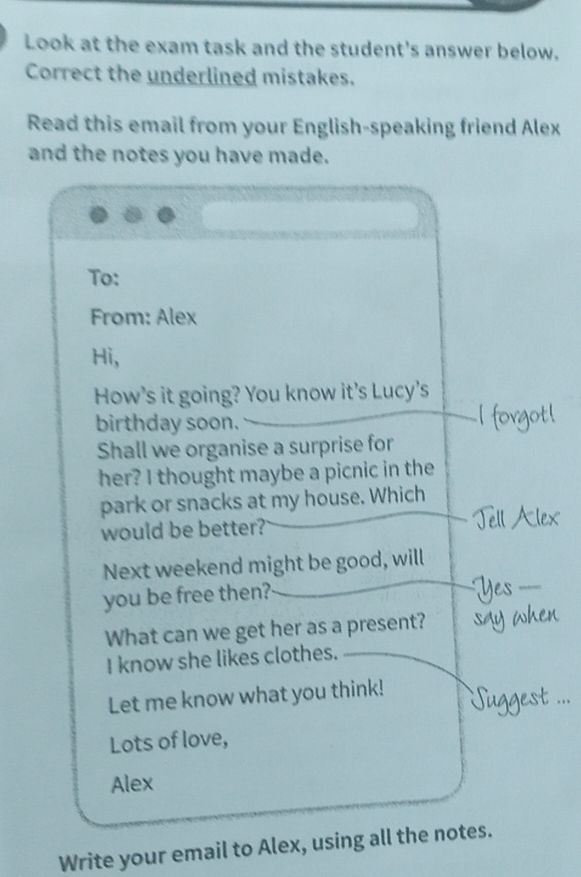 Look at the exam task and the student's answer below.
Correct the underlined mistakes.
Read this email from your English-speaking friend Alex
and the notes you have made.
To:
From: Alex
Hi,
How's it going? You know it's Lucy's
birthday soon.
I forgot!
Shall we organise a surprise for
her? I thought maybe a picnic in the
park or snacks at my house. Which
would be better?
Tell Alex
Next weekend might be good, will
you be free then?
Yes —
say when
What can we get her as a present?
I know she likes clothes.
Suggest ...
Let me know what you think!
Lots of love,
Alex
Write your email to Alex, using all the notes.